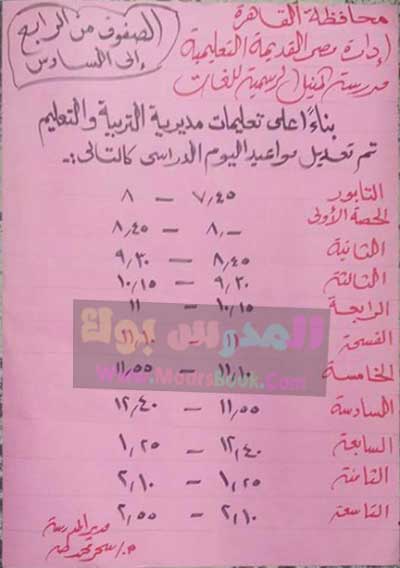 محافظة القاهرة
إدارة مصر القديمة التعليمية
مدرسة المنيل الرسمية للغات
الصفوف من الرابع
إلى السادس
بناءً على تعليمات مديرية التربية والتعليم
تم تعديل مواعيد اليوم الدراسى كالتالى:-
التابور ٧,٤٥ – ٨
الحصة الأولى ٨,- – ٨,٤٥
الثانية ٨,٤٥ – ٩,٣٠
الثالثة ٩,٣٠ – ١٠,١٥
الرابعة ١٠,١٥ – ١١
الفسحة ١١ – ١١,١٠
الخامسة ١١,١٠ – ١١,٥٥
السادسة ١١,٥٥ – ١٢,٤٠
السابعة ١٢,٤٠ – ١,٢٥
الثامنة ١,٢٥ – ٢,١٠
التاسعة ٢,١٠ – ٢,٥٥
مدير المدرسة
المدرس بوك
www.ModrsBook.Com